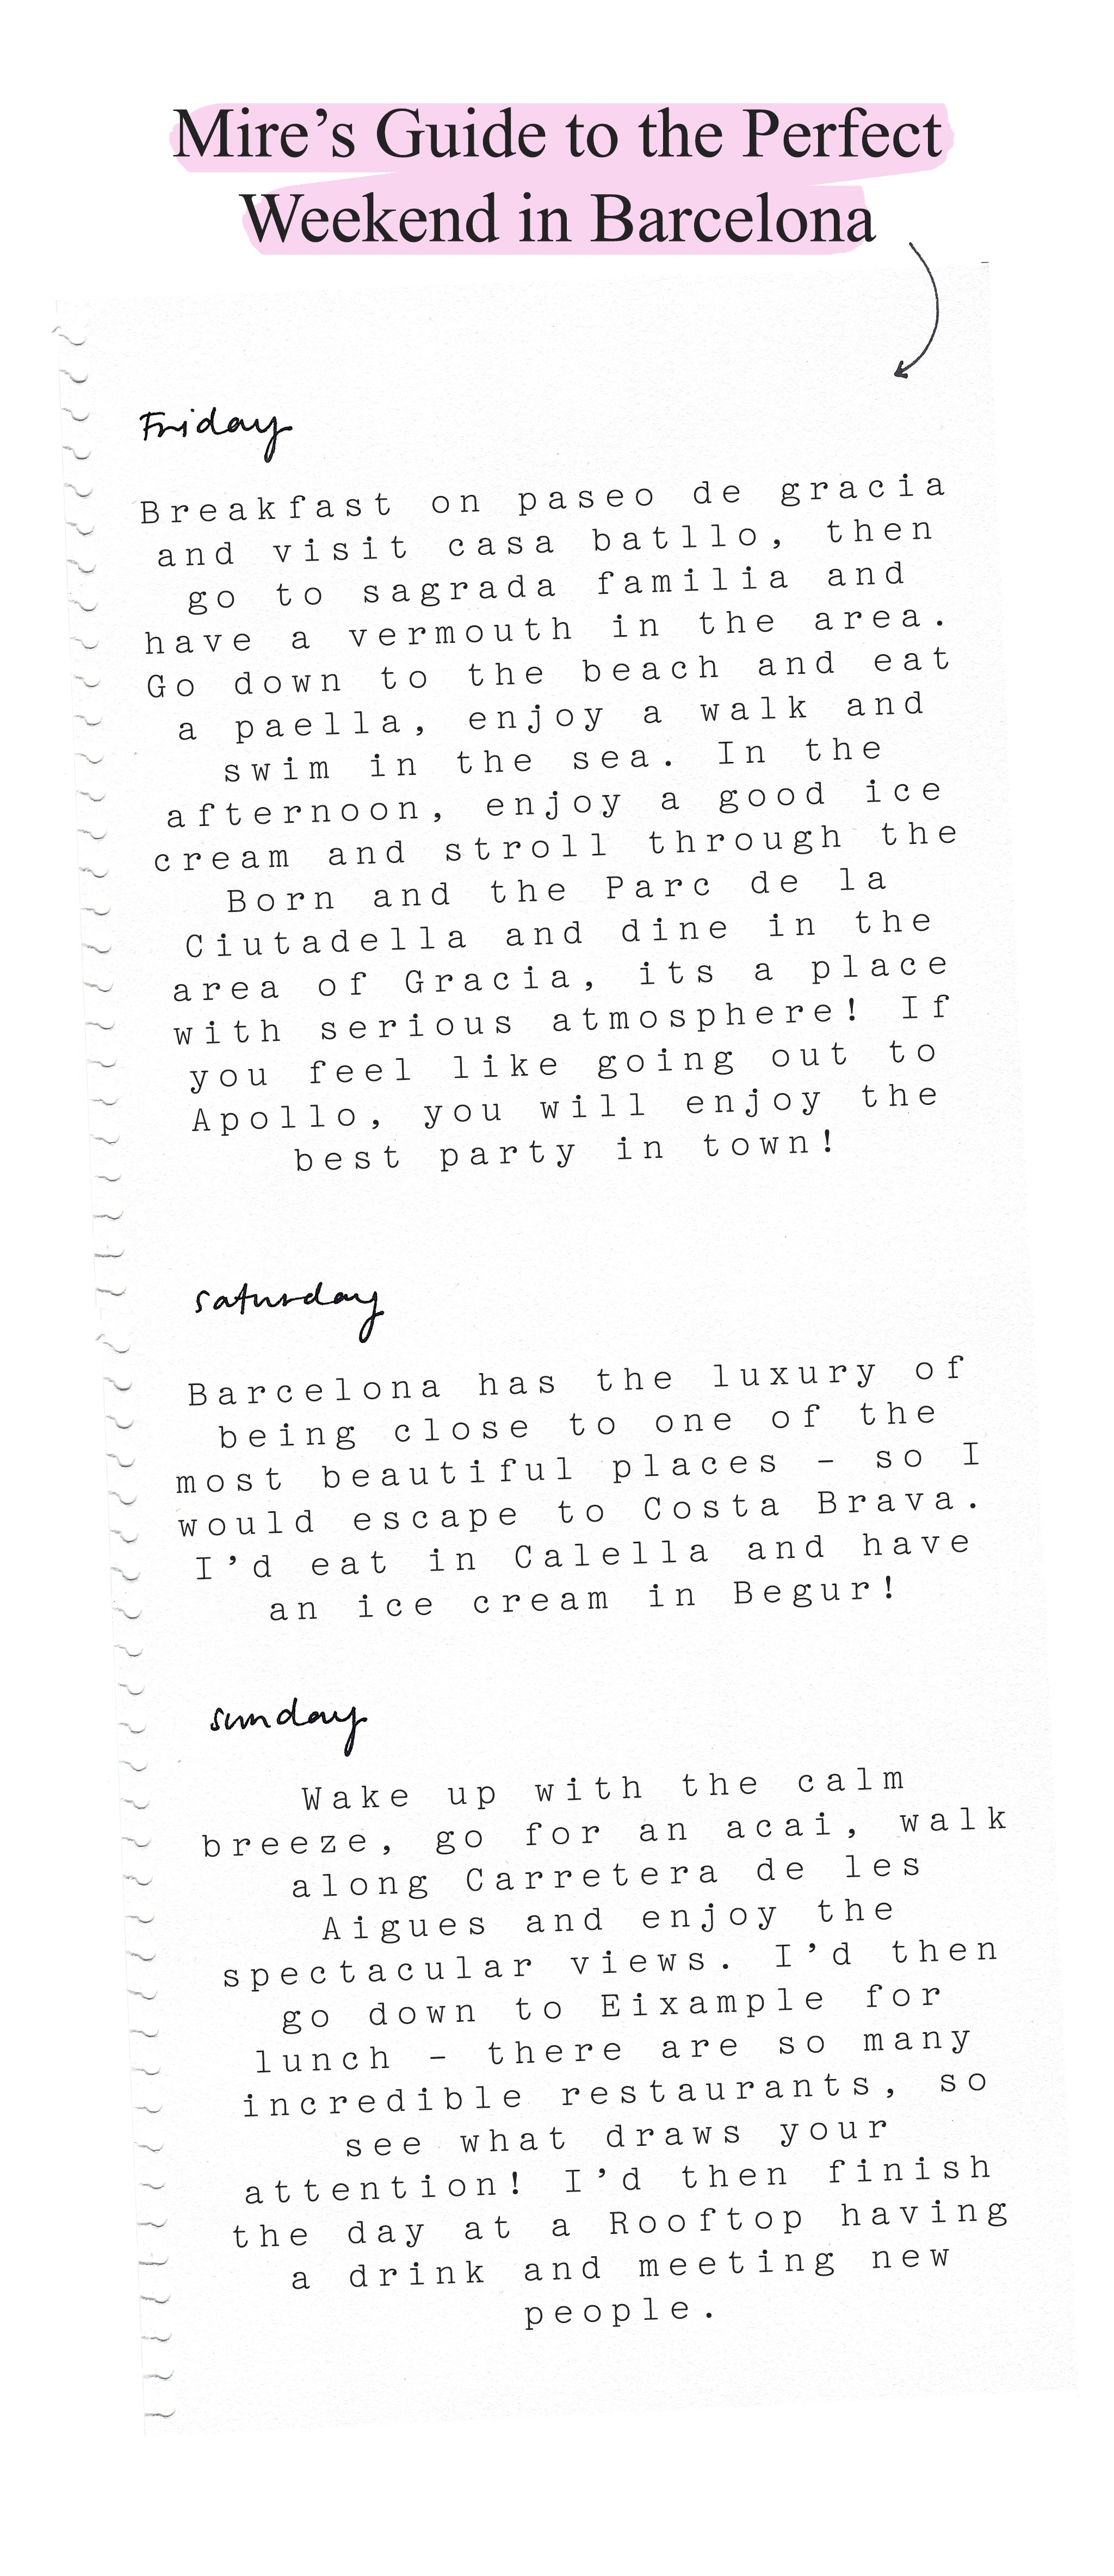 Mire’s Guide to the Perfect
Weekend in Barcelona
Friday
Breakfast on paseo de gracia
and visit casa batllo, then
go to sagrada familia and
have a vermouth in the area.
Go down to the beach and eat
a paella, enjoy a walk and
swim in the sea. In the
afternoon, enjoy a good ice
cream and stroll through the
Born and the Parc de la
Ciutadella and dine in the
area of Gracia, its a place
with serious atmosphere! If
you feel like going out to
Apollo, you will enjoy the
best party in town!
saturday
Barcelona has the luxury of
being close to one of the
most beautiful places - so I
would escape to Costa Brava.
I’d eat in Calella and have
an ice cream in Begur!
sunday
Wake up with the calm
breeze, go for an acai, walk
along Carretera de les
Aigues and enjoy the
spectacular views. I’d then
go down to Eixample for
lunch - there are so many
incredible restaurants, so
see what draws your
attention! I’d then finish
the day at a Rooftop having
a drink and meeting new
people.